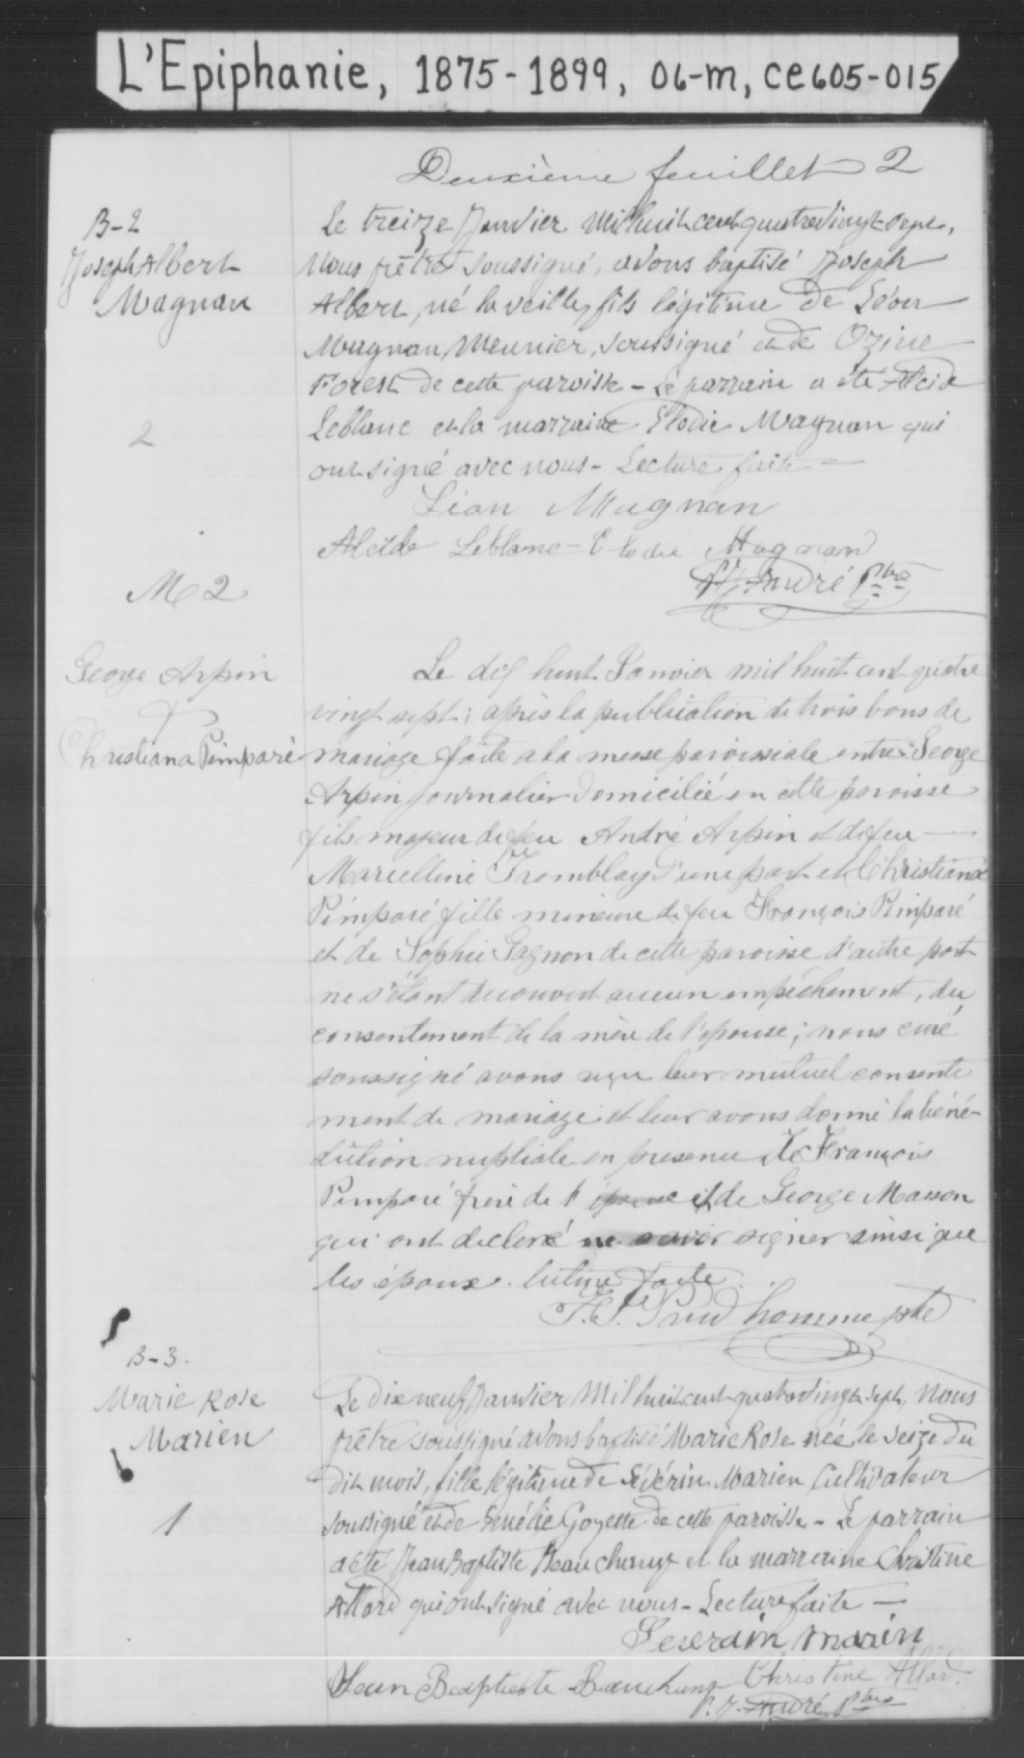 L'Epiphanie, 1875-1899, 06-m, ce605-015
Deuxième feuillet 2
B-2
Joseph Albert
Magnan
2
Le treize Janvier Mil huit cent quatrevingt-sept,
Nous prêtre soussigné, avons baptisé Joseph
Albert, né la veille, fils légitime de Léon
Magnan, Meunier, soussigné et de Ozine
Forest de cette paroisse - Le parrain a été Alcide
Leblanc et la marraine Elodie Magnan qui
ont signé avec nous - Lecture faite -
Léon Magnan
Alcide Leblanc - Elodie Magnan
P. J. André Ptre
M 2
George Arpin
&
Christiana Pimparé
Le dix huit Janvier mil huit cent quatre
vingt sept; après la publication de trois bans de
mariage faite a la messe paroissiale entre George
Arpin journalier domicilié en cette paroisse
fils majeur de feu André Arpin et de feu
Marcelline Tremblay d'une part et Christiana
Pimparé fille mineure de feu François Pimparé
et de Sophie Gagnon de cette paroisse d'autre part
ne s'étant decouvert aucun empêchement, du
consentement de la mère de l'épouse; nous curé
soussigné avons reçu leur mutuel consente
ment de mariage et leur avons donné la béné-
diction nuptiale en presence de François
Pimparé frère de l'épouse et de George Masson
qui ont declaré ne savoir signer ainsi que
les époux. lecture faite
F. P. Prud'homme ptre
B-3.
Marie Rose
Marien
1
Le dix neuf Janvier Mil huit cent quatrevingt sept, Nous
prêtre soussigné avons baptisé Marie Rose née le seize du
dit mois, fille légitime de Sévérin Marien Cultivateur
soussigné et de Benélie Goyette de cette paroisse - Le parrain
a été Jean Baptiste Beauchamp et la marraine Christine
Allard qui ont signé avec nous - Lecture faite -
Severain Marien
Jean Baptiste Bauchamp Christine Allard.
P. J. André Ptre